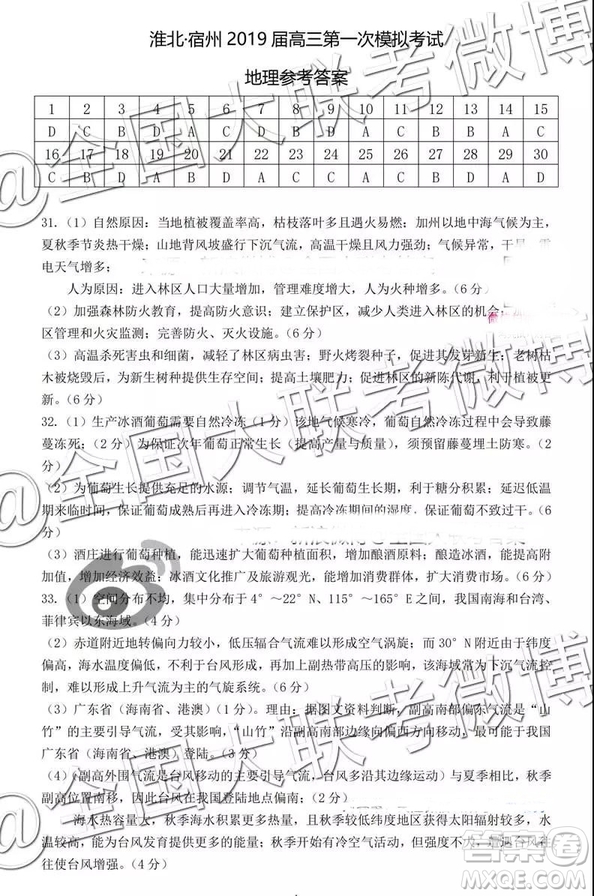 淮北·宿州 2019 届高三第一次模拟考试
地理参考答案
1 2 3 4 5 6 7 8 9 10 11 12 13 14 15
D C B D A C D B D A C C B A
16 17 18 19 20 21 22 23 24 25 26 27 28 29 30
C B D B D A C C A C A B A D D
31.（1）自然原因：当地植被覆盖率高，枯枝落叶多且遇火易燃；加州以地中海气候为主，
夏秋季节炎热干燥；山地背风坡盛行下沉气流，高温干燥且风力强劲；气候异常，干旱、雷
电天气增多；
人为原因：进入林区人口大量增加，管理难度增大。（6 分）
（2）加强森林防火教育，提高防火意识；建立保护区，减少人类进入林区的机会；
区管理和火灾监测；完善防火、灭火设施。（6 分）
（3）高温杀死害虫和细菌，减轻了林区病虫害；野火烤裂种子，促进其发芽新生；老树枯
木被烧毁后，为新生树种提供生存空间；提高土壤肥力；促进林区的新陈代谢，利于植被
生长。（8 分）
32.（1）生产冰酒葡萄需要自然冷冻（1 分）该地气候寒冷，葡萄自然冷冻过程中会导致藤
蔓冻死；（2 分）为保证次年葡萄正常生长（提高产量与质量），须预留藤蔓埋土防寒。（2
分）
（2）为葡萄生长提供充足的水源；调节气温，延长葡萄生长期，利于糖分积累；延迟低温
期来临时间，保证葡萄成熟后再进入冷冻期；提高冷冻期间的湿度，保证葡萄不致过干。（6
分）
（3）酒庄进行葡萄种植，能迅速扩大葡萄种植面积，增加酿酒原料；酿造冰酒，能提高葡
萄附加值，增加经济效益；冰酒文化推广及旅游观光，能增加消费群体，扩大消费市场。（6 分）
33.（1）空间分布不均，集中分布于 4°～22°N、115°～165°E 之间，我国南海和台湾、
菲律宾以东海域。（4 分）
（2）赤道附近地转偏向力较小，低压辐合气流难以形成空气涡旋；而 30°N 以北因纬度
偏高，海水温度偏低，不利于台风形成，再加上副热带高压的影响，该海域常为下沉气流控
制，难以形成上升为主的气旋系统。（6 分）
（3）广东省（海南省、港澳）（1 分）理由：据图文资料判断，副高南部偏东气流是“山
竹”的主要引导气流，受其影响，“山竹”沿副高南部边缘向偏西方向运动，最可能在我国
广东省（海南省、港澳）登陆。（3 分）
（4）副高外围气流是台风移动的主要引导气流，台风多沿其边缘运动；与夏季相比，秋季
副高位置偏南，因此秋季台风在我国登陆地点偏南；（2 分）
海水热容量大，海水热量积累更多，秋季海水温度更高，能为台风获得太阳辐射较多，水
温较高，能为台风发育提供更多热量；秋季开始有冷空气活动，但台风往
往使台风增强。（4 分）